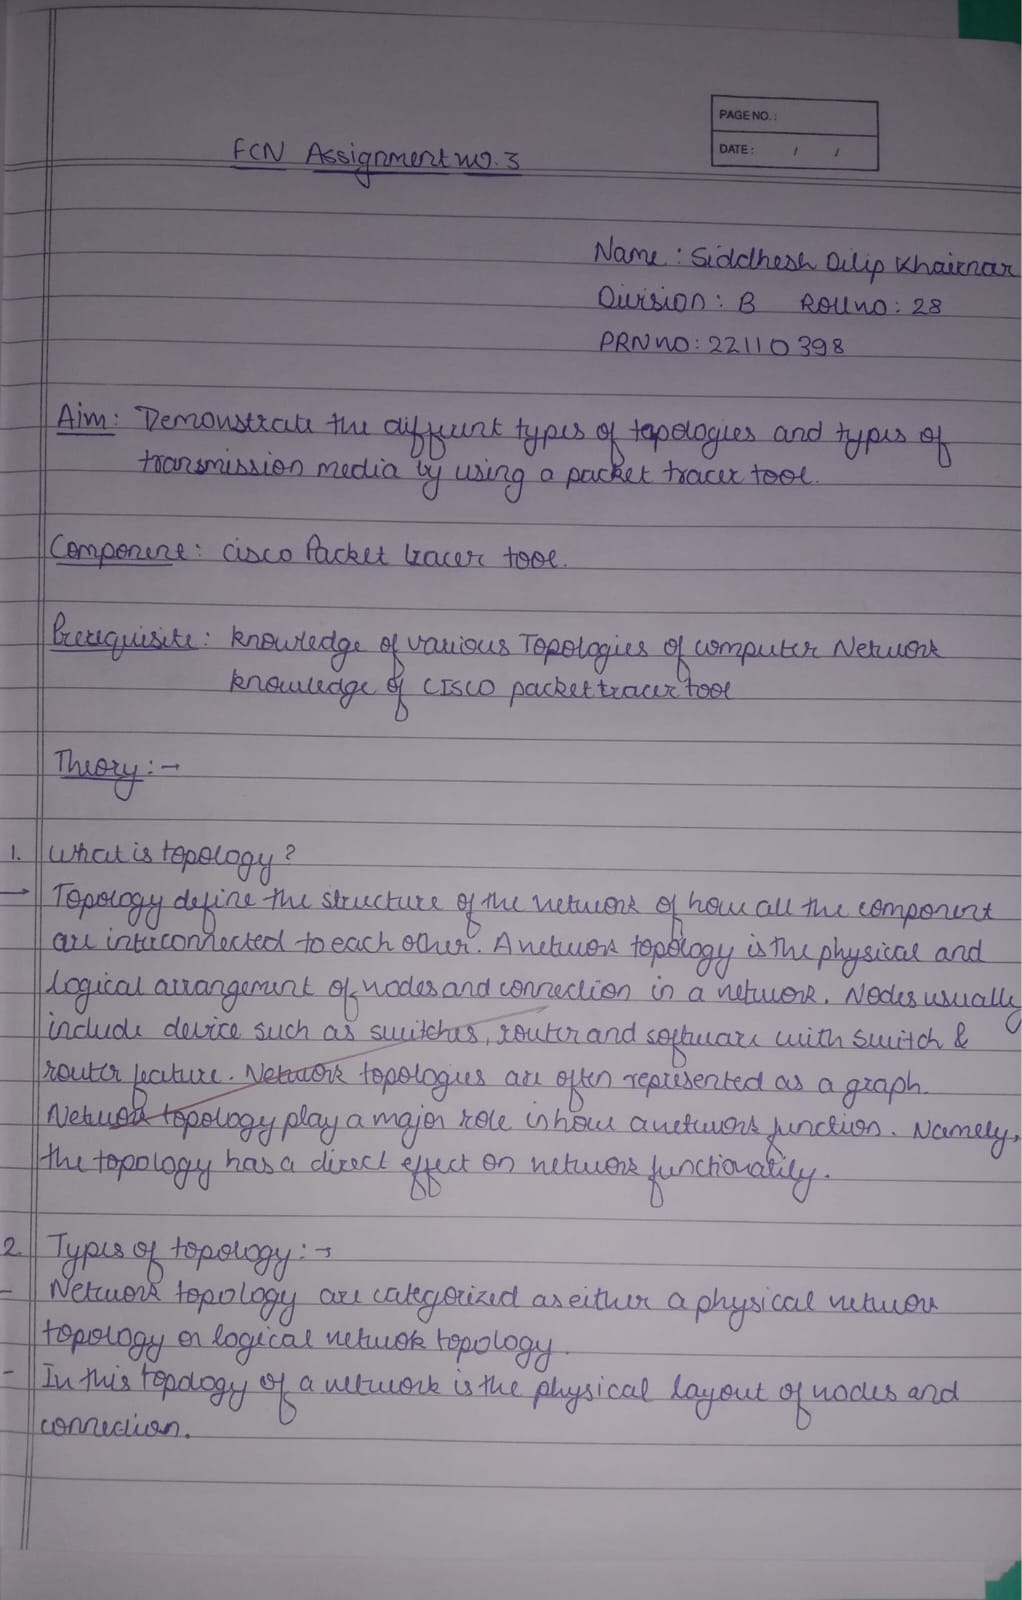 PAGE NO. :
DATE : / /
FCN Assignment no. 3
Name : Siddhesh Dilip Khairnar
Division : B Roll no : 28
PRN no : 22110398
Aim : Demonstrate the different types of topologies and types of
transmission media by using a packet tracer tool.
Component : cisco Packet tracer tool.
Prerequisite : knowledge of various Topologies of computer Network
knowledge of CISCO packet tracer tool
Theory : →
1. What is topology ?
→ Topology define the structure of the network of how all the component
are interconnected to each other. A network topology is the physical and
logical arrangement of nodes and connection in a network. Nodes usually
include device such as switches, router and software with switch &
router feature. Network topologies are often represented as a graph.
Network topology play a major role in how a network function. Namely,
the topology has a direct effect on network functionality.
2. Types of topology : →
- Network topology are categorized as either a physical network
topology or logical network topology.
- In this topology of a network is the physical layout of nodes and
connection.